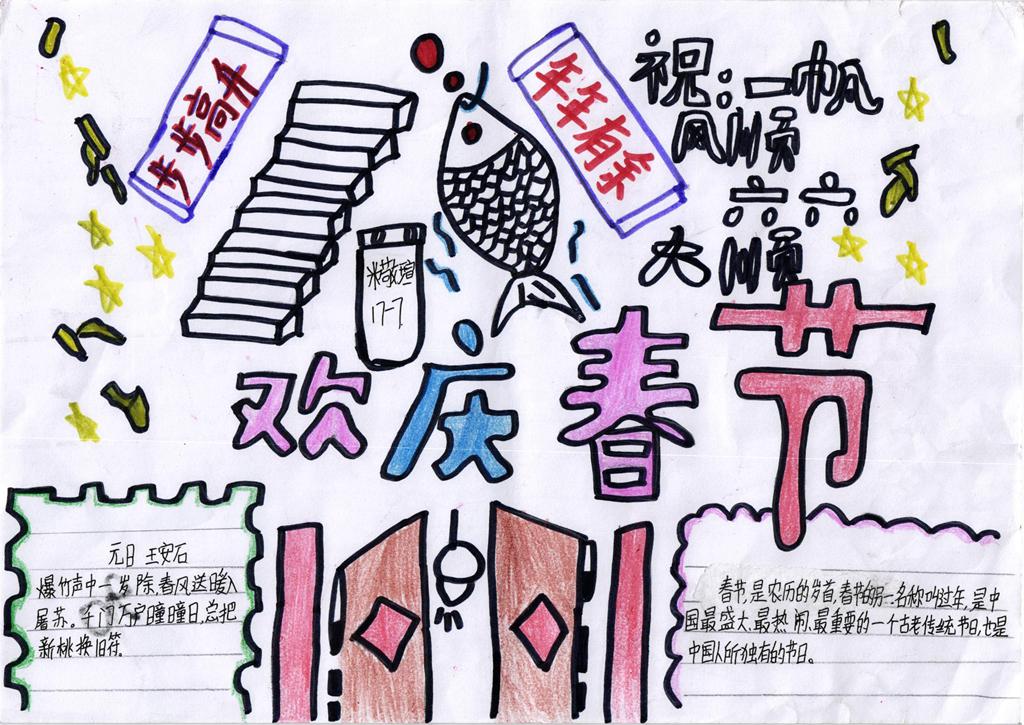 步步高升
年年有余
祝：一帆
风顺
六六
大顺
米敬瑄
17-7
欢庆春节
元日 王安石
爆竹声中一岁除,春风送暖入
屠苏。千门万户曈曈日,总把
新桃换旧符。
春节,是农历的岁首,春节的另一名称叫过年,是中
国最盛大、最热闹、最重要的一个古老传统节日,也是
中国人所独有的节日。